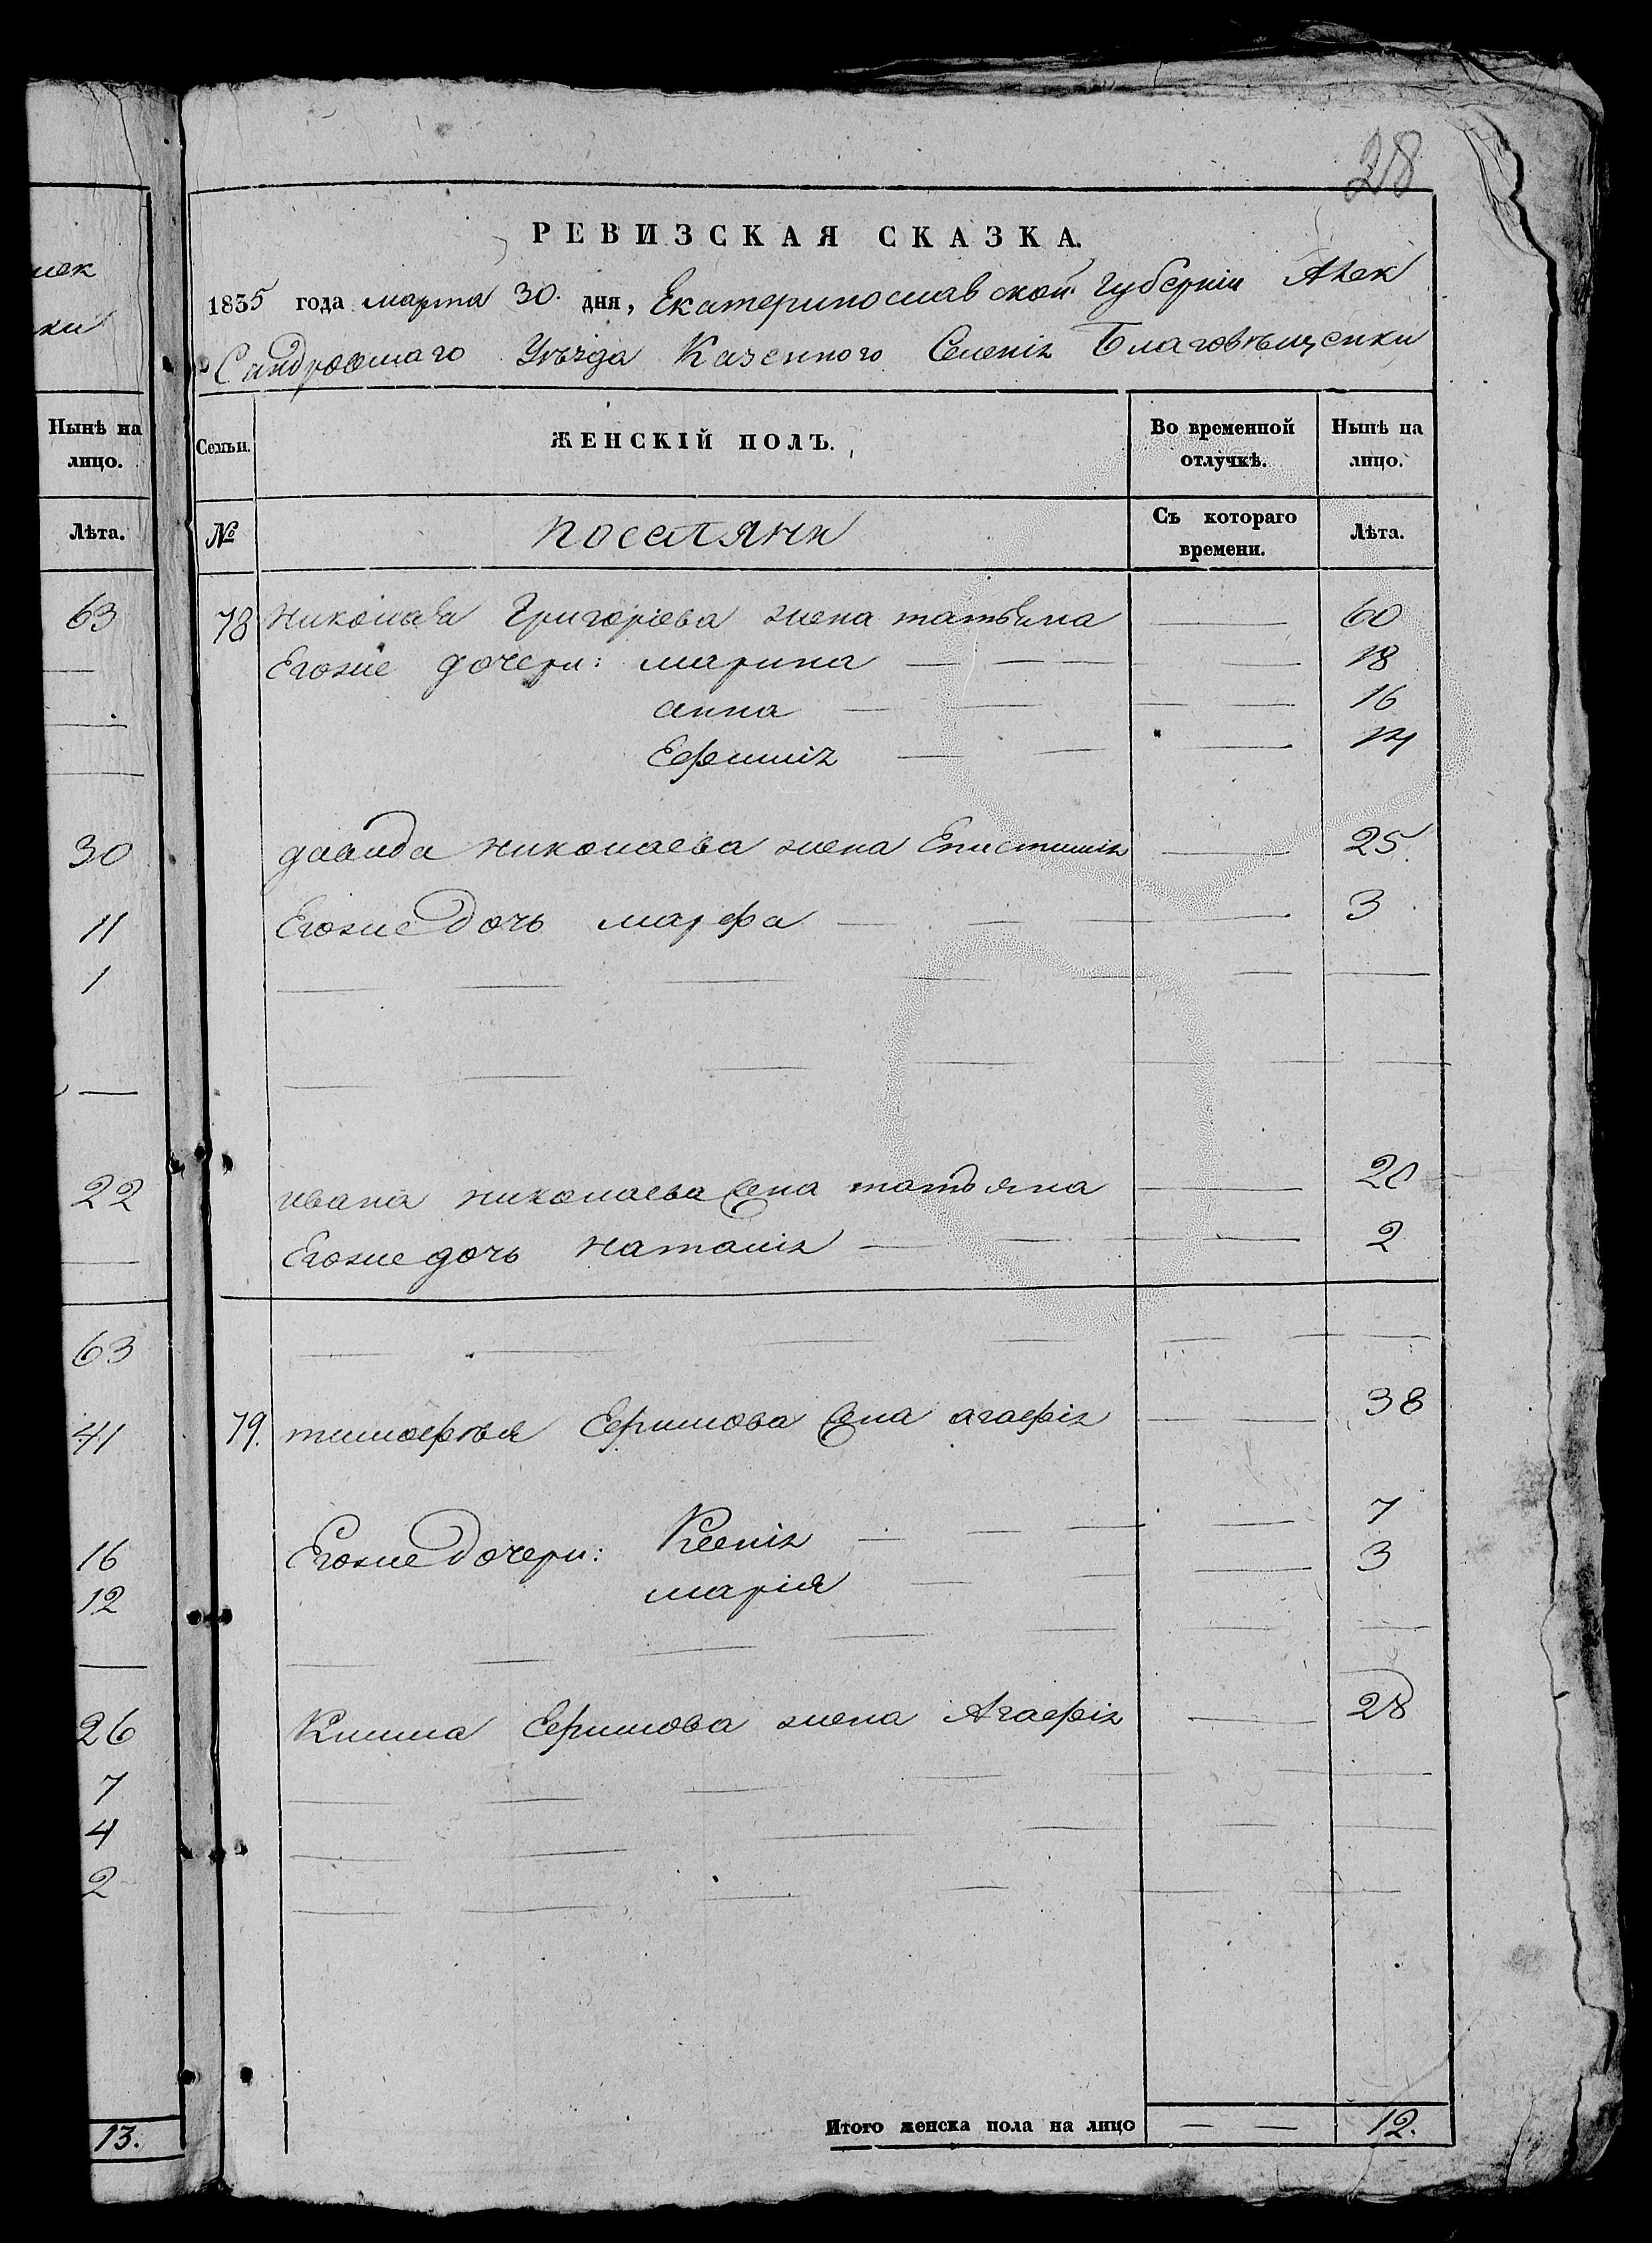 28
РЕВИЗСКАЯ СКАЗКА.
1835 года марта 30. дня, Екатеринославской губерніи Алек
Сандровшаго Уѣзда Казенного Селенія Благовѣщенки
шек
ки
Нынѣ на
лицо.
Лѣта.
63
30
11
1
22
63
41
16
12
26
7
4
2
13.
Семьи.
ЖЕНСКІЙ ПОЛЪ.
Во временной
отлучкѣ.
Нынѣ на
лицо.
№
поселяни
Съ котораго
времени.
Лѣта.
78 николая Григоріева жена татьяна 60
Егоже дочери: марина 18
анна 16
Ефимія 14
давида николаева жена Епистимія 25.
Егоже дочь марфа 3
ивана николаева жена татьяна 20
Егоже дочь наталія 2
79. тимофѣя Ефимова жена агафія 38
Егоже дочери: Ксенія 7
марія 3
Клима Ефимова жена Агафія 28
Итого женска пола на лицо 12.